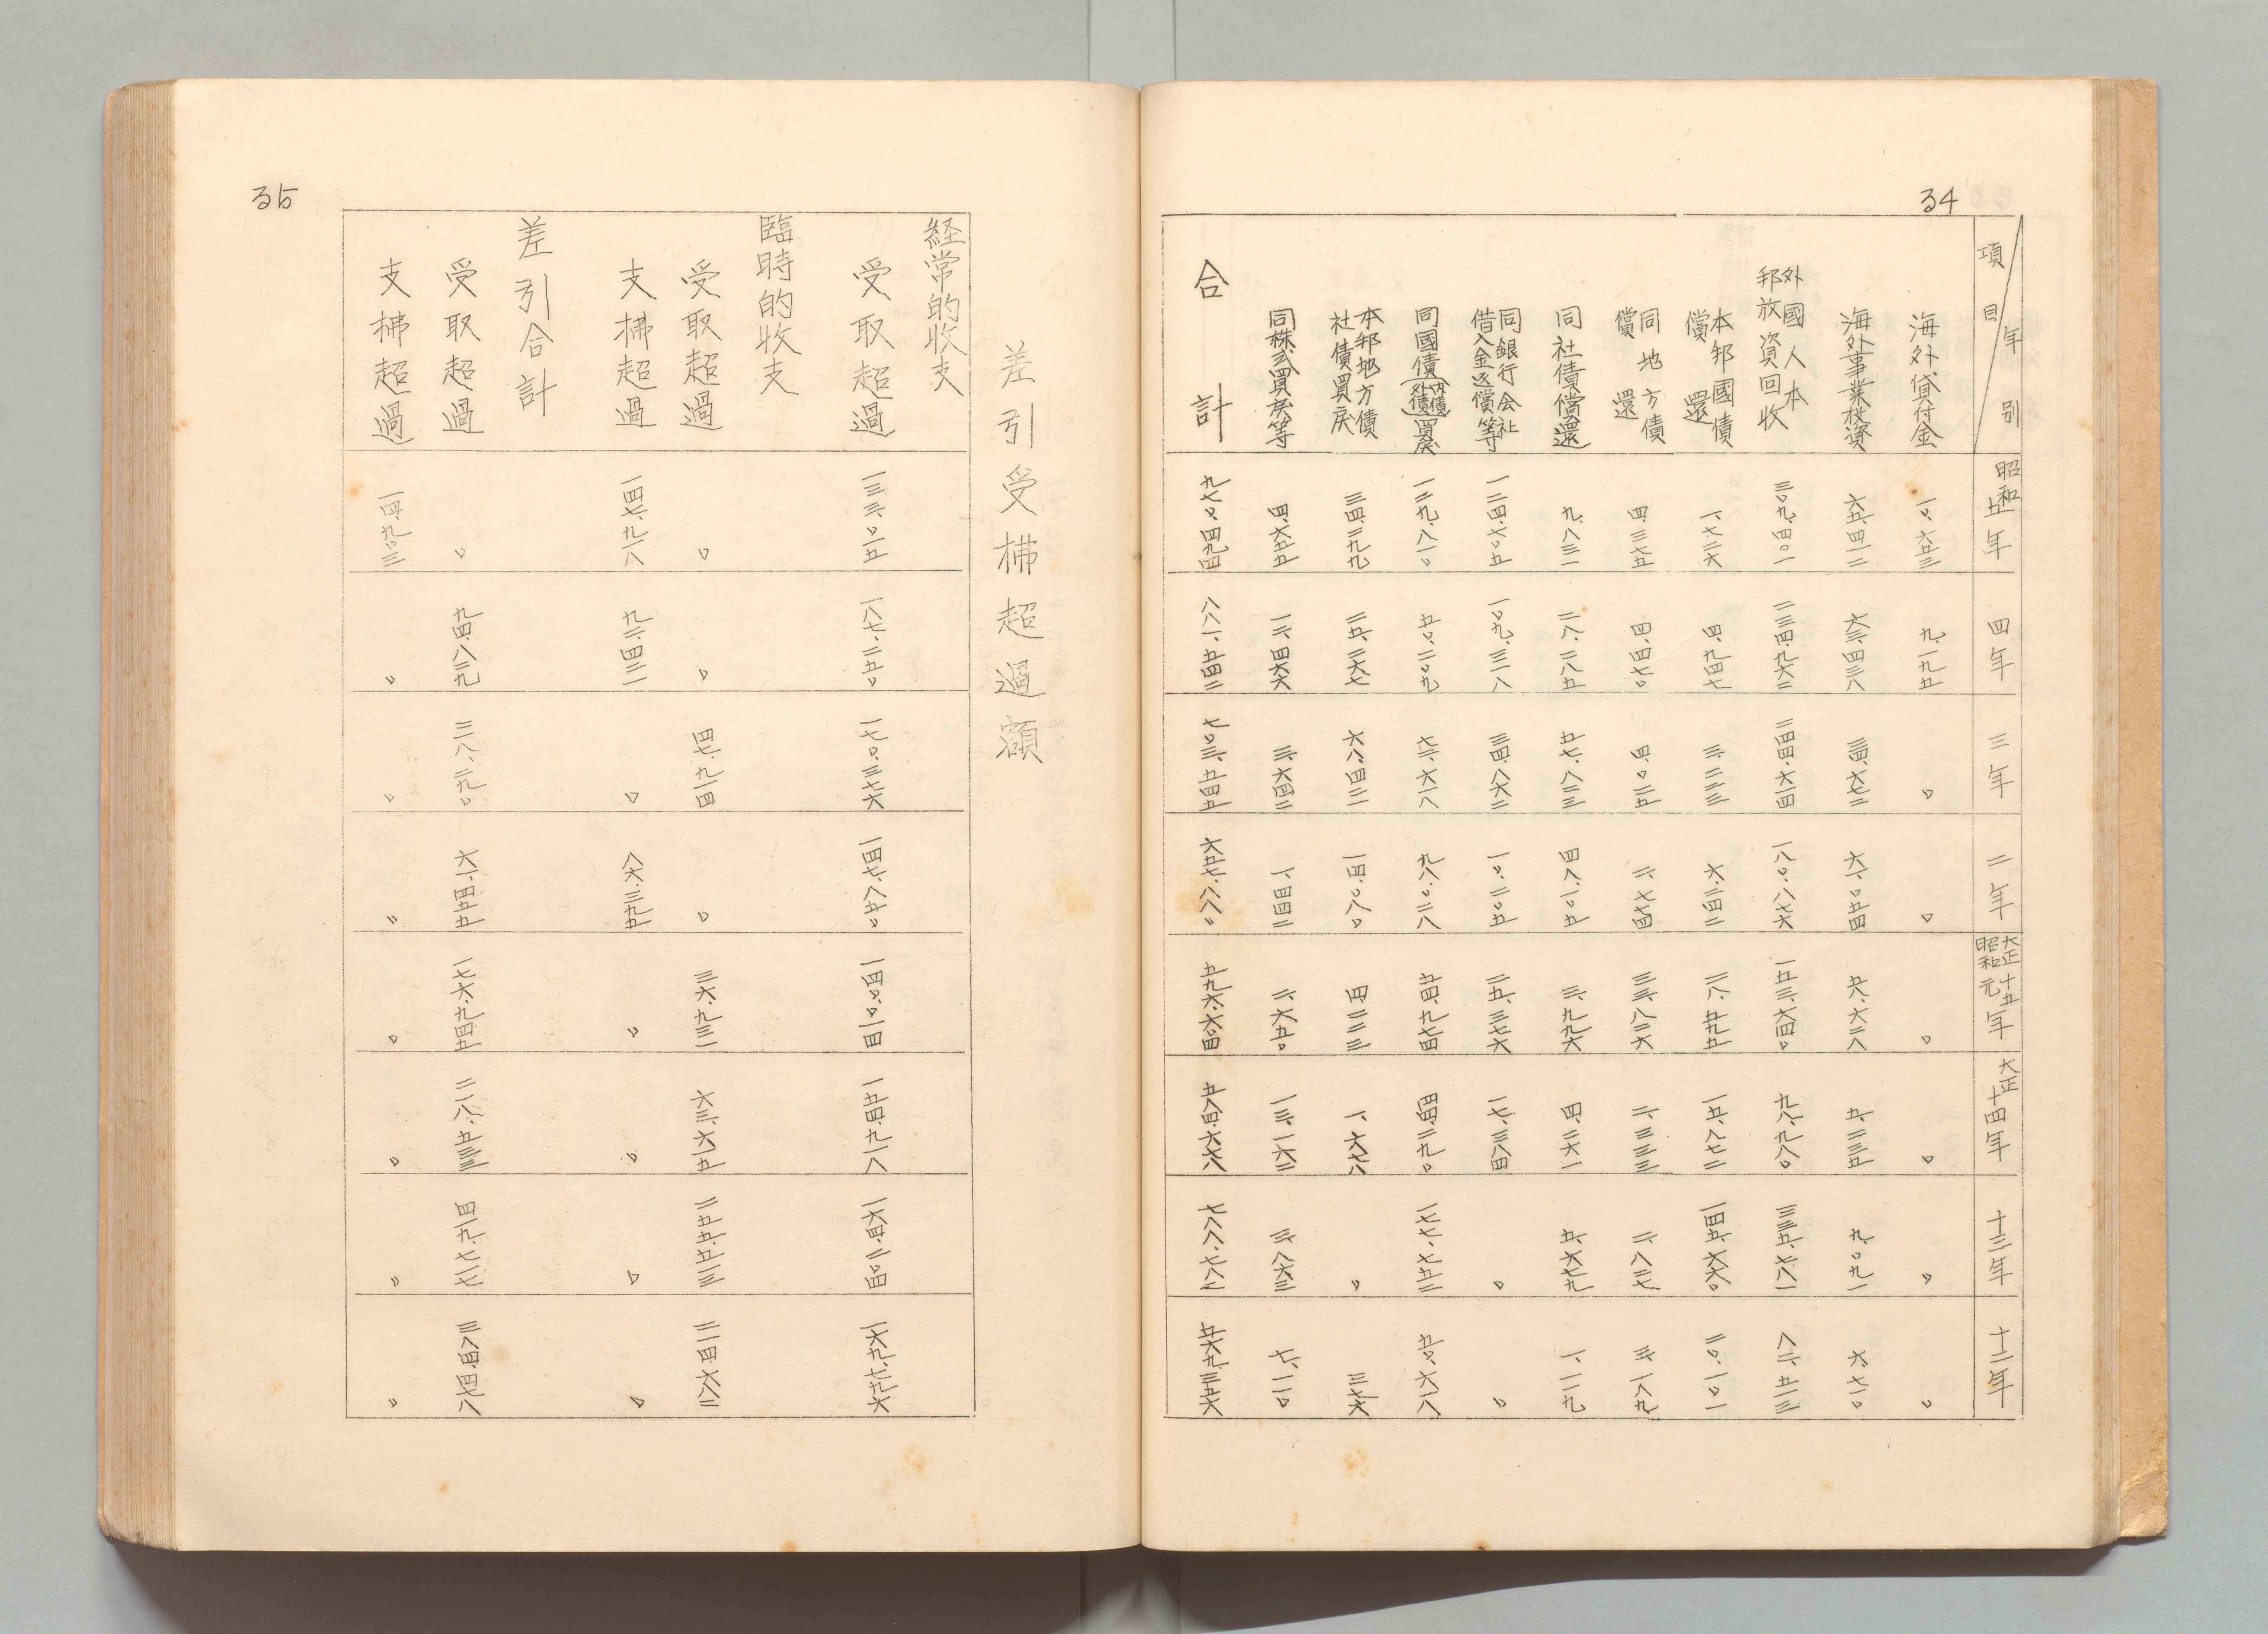 34
項目 年別 昭和五年 四年 三年 二年 大正十五年 昭和元 大正十四年 十三年 十二年
海外貸付金 一〇、六五三 九、一九五 〇 〇 〇 〇 〇 〇
海外事業投資 六五、四一二 六三、四三八 三四、六七二 六一、〇五四 五八、六二八 五、二三五 九、〇九一 六、七一〇
外國人本邦放資回收 三〇九、四〇一 二三四、九六二 二四四、六一四 一八〇、八七六 一五三、六四〇 九八、九八〇 三三五、七八一 八二、五一三
本邦國債償還 一、七二六 四、九四七 三、二二三 六、二四二 二八、五九五 一五、八七二 一四五、六六〇 二〇、一〇一
同地方債償還 四、三七五 四、四七〇 四、〇二五 二、七七四 三三、八二六 二、三三三 二、八三七 三、一八九
同社債償還 九、八三一 二八、二八五 五七、八二三 四八、一〇五 三、九九六 四、二六一 五、六七九 一、一一九
同銀行会社借入金返償等 一二四、七〇五 一〇九、三一八 三四、八六二 一〇、二〇五 二五、三七六 一七、三八四 〇 〇
同國債(内債外債)買戻 一二九、八一〇 五〇、二〇九 七二、六一八 九八、〇二八 五四、九七四 四四、二九〇 一七七、七五二 五〇、六一八
本邦地方債社債買戻 三四、二九九 二五、二六七 六八、四三一 一四、〇八〇 四、二三三 一、六七八 〇 三七六
同株式買戻等 四、六五五 一二、四六六 三、六四二 一、四四二 二、六五〇 一三、一六二 三、八六三 七、一一〇
合計 九七〇、四九四 八八一、五四二 七〇三、五四五 六五七、八八〇 五九六、六〇四 五八四、六七八 七八八、七八二 五六九、三五六
差引受拂超過額
経常的收支
受取超過 一三三、〇一五 一八七、二五〇 一七〇、三七六 一四七、八五〇 一四〇、〇一四 一五四、九一八 一六四、二〇四 一六九、七九六
臨時的收支
受取超過 〇 〇 四七、九一四 〇 三六、九三一 六三、六一五 二五五、五一三 二一四、六八二
支拂超過 一四七、九一八 九二、四二一 〇 八六、三九五 〃 〃 〇 〇
差引合計
受取超過 〇 九四、八二九 二一八、二九〇 六一、四五五 一七六、九四五 二一八、五三三 四一九、七一七 三八四、四七八
支拂超過 一四、九〇三 〃 〃 〃 〃 〃 〃 〃
35